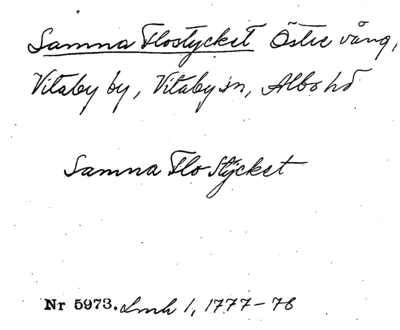 Samna Flostycket Östre vång,
Vitaby by, Vitaby sn, Albo hd
Samna Flo Stÿcket
Nr 5973. Lmh 1, 1777-78